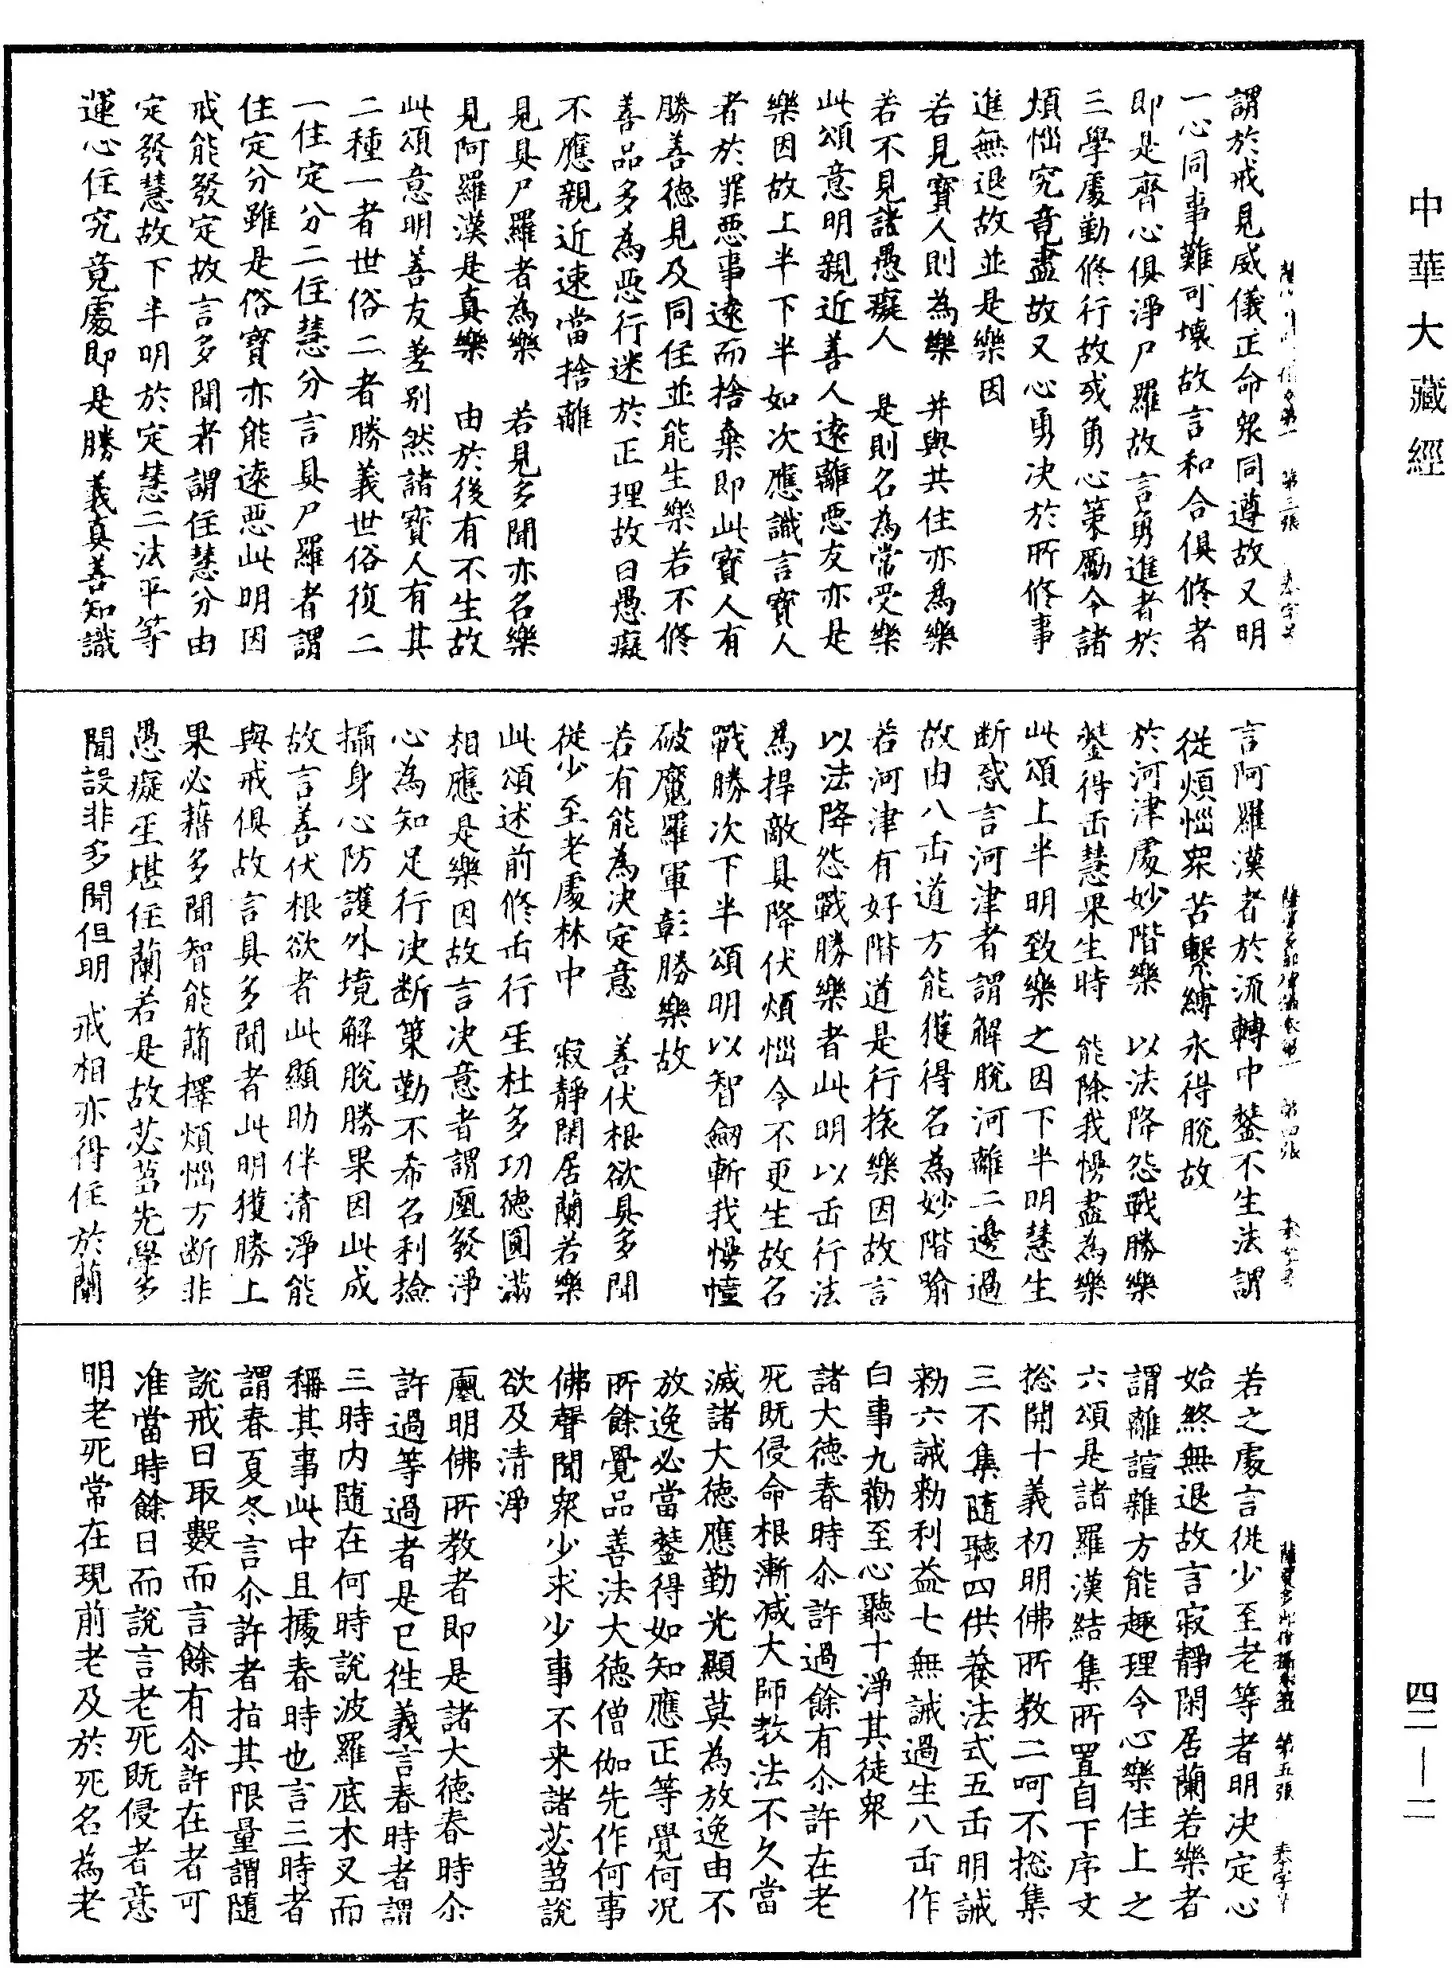 中華大藏經
謂於戒見威儀正命衆同遵故又明
一心同事難可壞故言和合俱修者
即是齊心俱淨尸羅故言勇進者於
三學處勤修行故或勇心策勵令諸
煩惱究竟盡故又心勇決於所修事
進無退故並是樂因
若見寶人則為樂　并與共住亦為樂
若不見諸愚癡人　是則名為常受樂
此頌意明親近善人遠離惡友亦是
樂因故上半下半如次應識言寶人
者於罪惡事遠而捨棄即此寶人有
勝善德見及同住並能生樂若不修
善品多為惡行迷於正理故曰愚癡
不應親近速當捨離
見具尸羅者為樂　若見多聞亦名樂
見阿羅漢是真樂　由於後有不生故
此頌意明善友差别然諸寶人有其
二種一者世俗二者勝義世俗復二
一住定分二住慧分言具尸羅者謂
住定分雖是俗寶亦能遠惡此明因
戒能發定故言多聞者謂住慧分由
定發慧故下半明於定慧二法平等
運心住究竟處即是勝義真善知識
第三張
言阿羅漢者於流轉中鏊不生法謂
從煩惱衆苦繫縛永得脫故
於河津處妙階樂　以法降怨戰勝樂
鏊得正慧果生時　能除我慢盡為樂
此頌上半明致樂之因下半明慧生
断惑言河津者謂解脫河離二邊過
故由八正道方能獲得名為妙階喻
若河津有好階道是行捺樂因故言
以法降怨戰勝樂者此明以正行法
為捍敵具降伏煩惱令不更生故名
戰勝次下半頌明以智劒斬我慢幢
破魔羅軍彰勝樂故
若有能為決定意　善伏根欲具多聞
從少至老處林中　寂靜閑居蘭若樂
此頌述前修正行至杜多功德圓滿
相應是樂因故言決意者謂鳳發淨
心為知足行決断策勤不希名利撿
攝身心防護外境解脫勝果因此成
故言善伏根欲者此顯助伴清淨能
與戒俱故言具多聞者此明獲勝上
果必藉多聞智能簡擇煩惱方断非
愚癡至堪住蘭若是故苾芻先學多
聞設非多聞但明戒相亦得住於蘭
第四張
若之處言從少至老等者明決定心
始終無退故言寂靜閑居蘭若樂者
謂離諠雜方能趣理令心樂住上之
六頌是諸羅漢結集所置自下序文
揔開十義初明佛所教二呵不揔集
三不集隨聽四供養法式五正明誡
勑六誡勑利益七無誡過生八正作
白事九勸至心聽十淨其徒衆
諸大德春時尒許過餘有尒許在老
死既侵命根漸減大師教法不久當
滅諸大德應勤光顯莫為放逸由不
放逸必當鏊得如知應正等覺何況
所餘覺品善法大德僧伽先作何事
佛聲聞衆少求少事不来諸苾芻說
欲及清淨
鳳明佛所教者即是諸大德春時尒
許過等過者是已往義言春時者謂
三時内隨在何時說波羅底木叉而
稱其事此中且據春時也言三時者
謂春夏冬言尒許者指其限量謂隨
說戒日取數而言餘有尒許在者可
准當時餘日而說言老死既侵者意
明老死常在現前老及於死名為老
第五張
四二—二